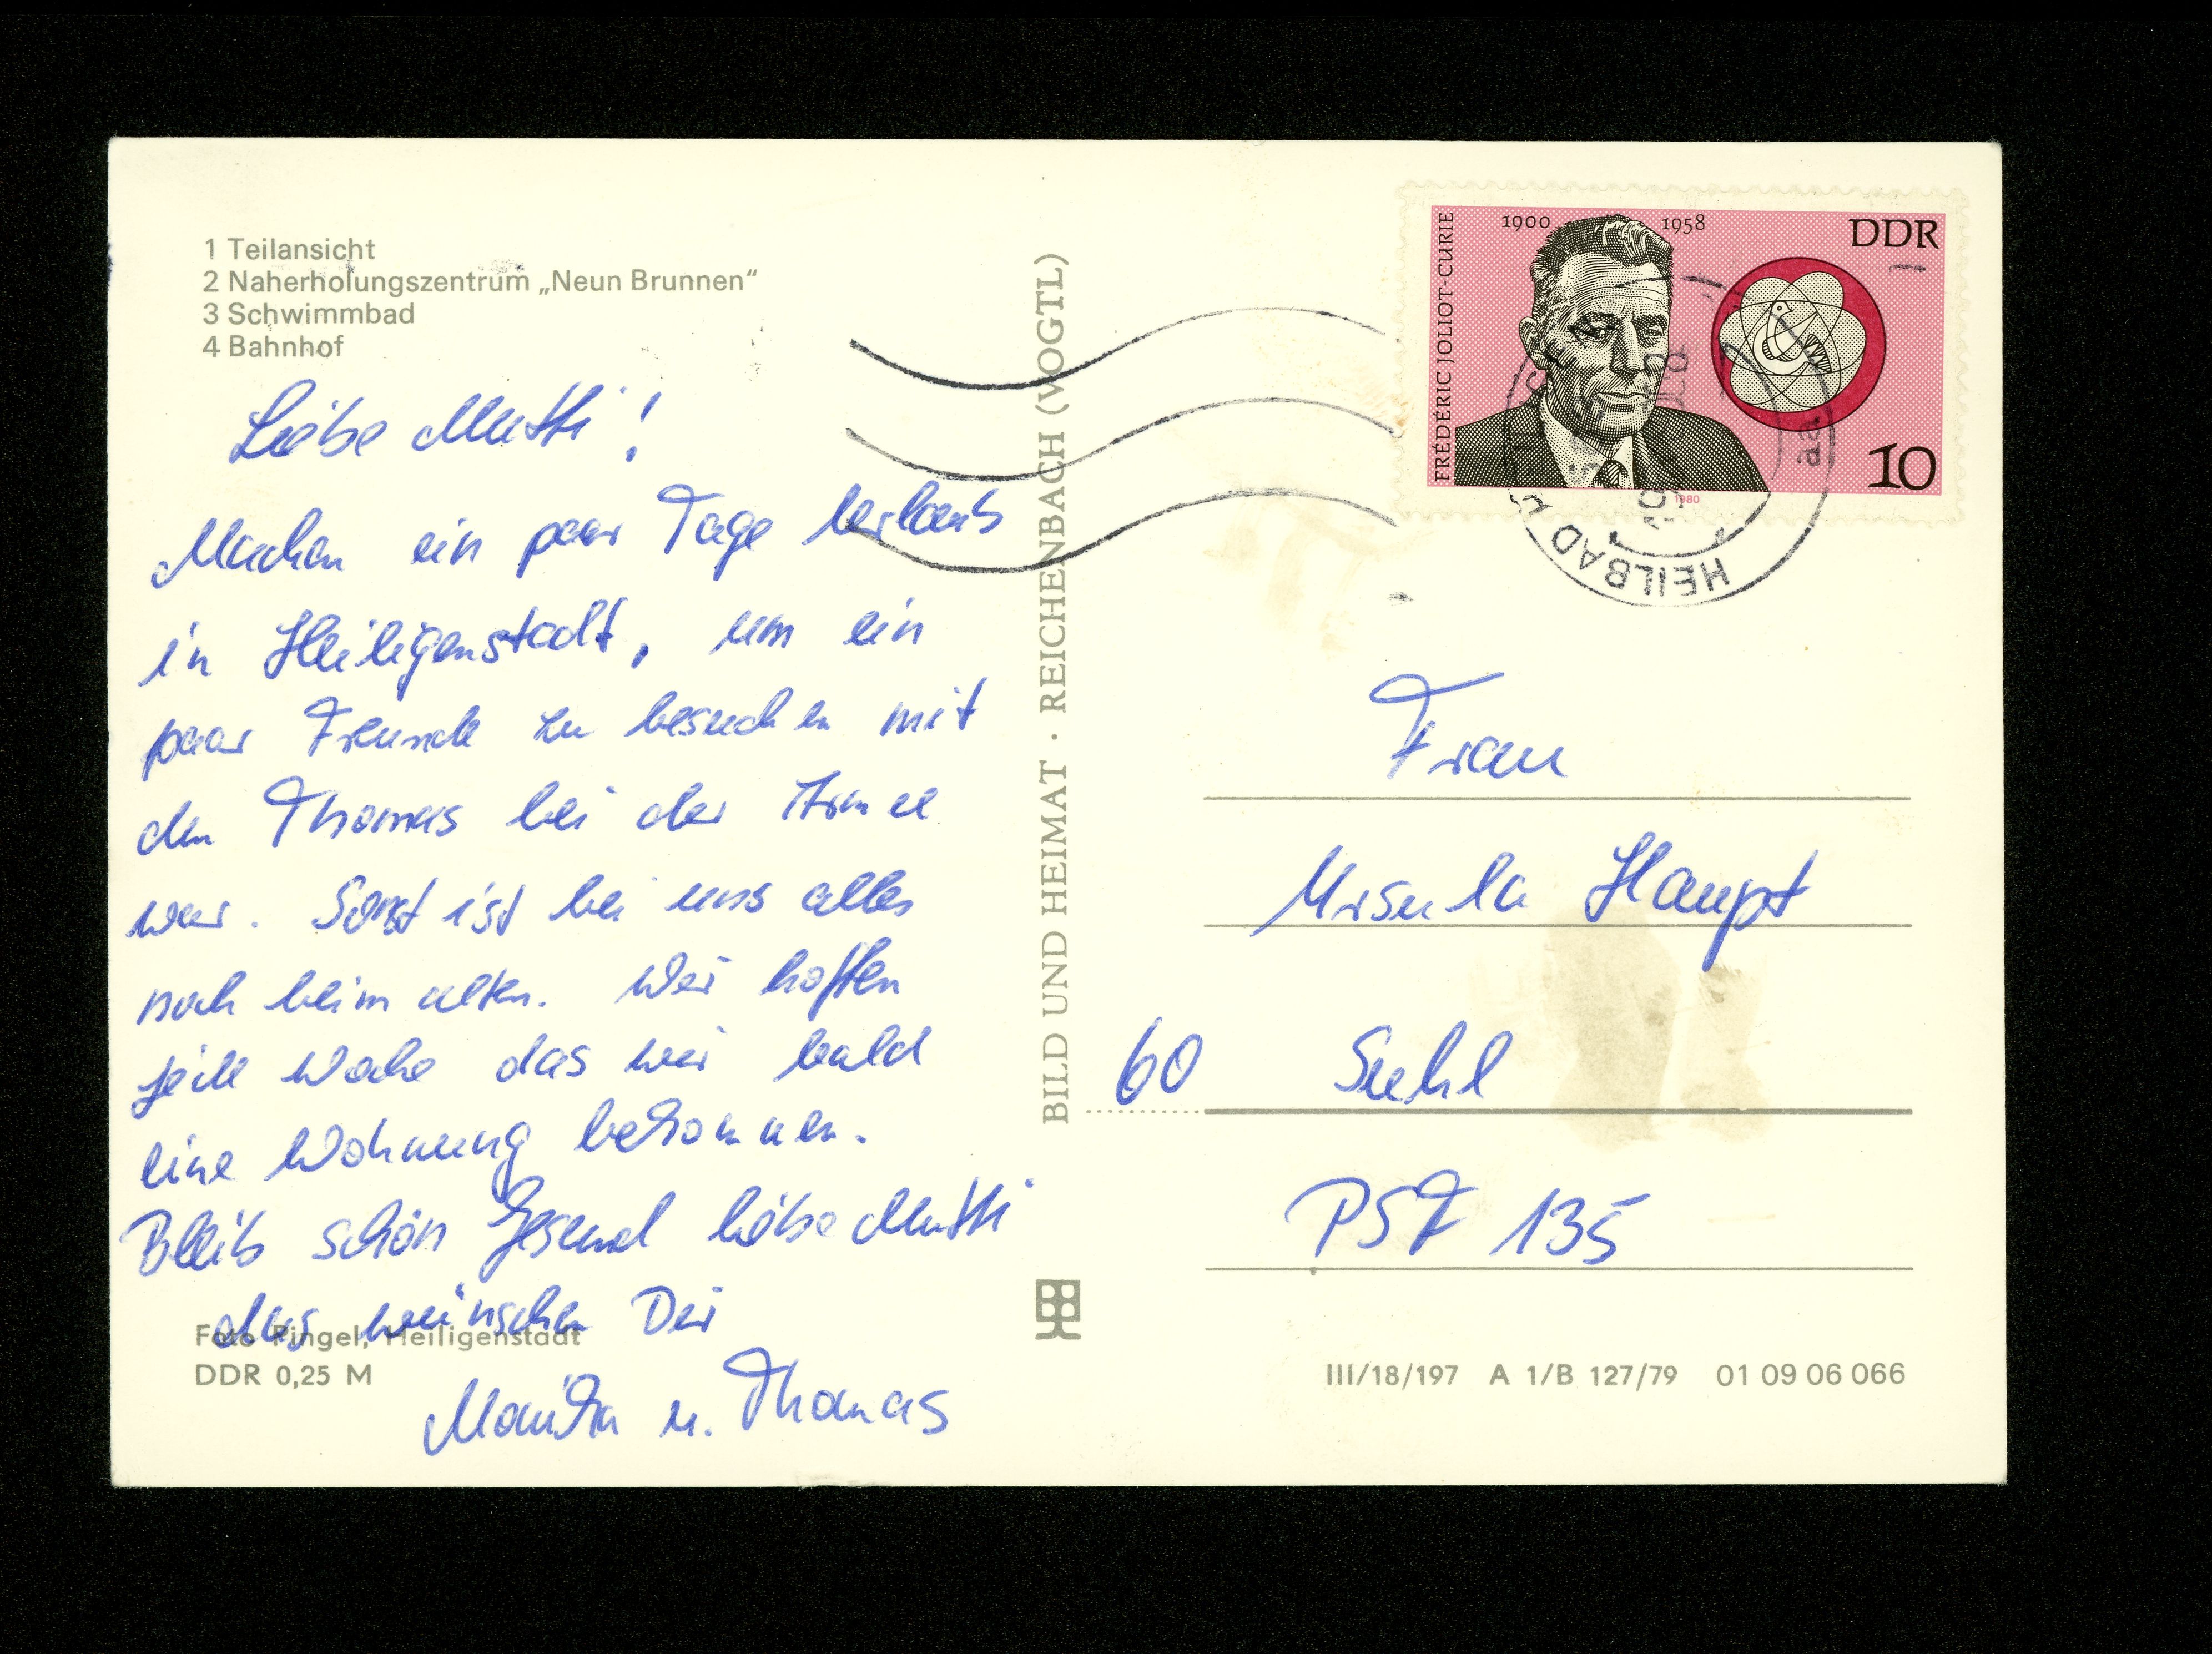 1 Teilansicht
2 Naherholungszentrum „Neun Brunnen“
3 Schwimmbad
4 Bahnhof
Liebe Mutti!
Machen ein paar Tage Urlaub
in Heiligenstadt, um ein
paar Freunde zu besuchen mit
den Thomas bei der Armee
war. Sonst ist bei uns alles
noch beim alten. Wir hoffen
jede Woche das wir bald
eine Wohnung bekommen.
Bleib schön Gesund liebe Mutti
das wünschen Dir
Monika u. Thomas
Foto Pingel, Heiligenstadt
DDR 0,25 M
BILD UND HEIMAT · REICHENBACH (VOGTL)
FRÉDÉRIC JOLIOT-CURIE
1900 1958
DDR
10
1980
HEILBAD
aa
Frau
Ursula Haupt
60 Suhl
PSF 135
III/18/197 A 1/B 127/79 01 09 06 066